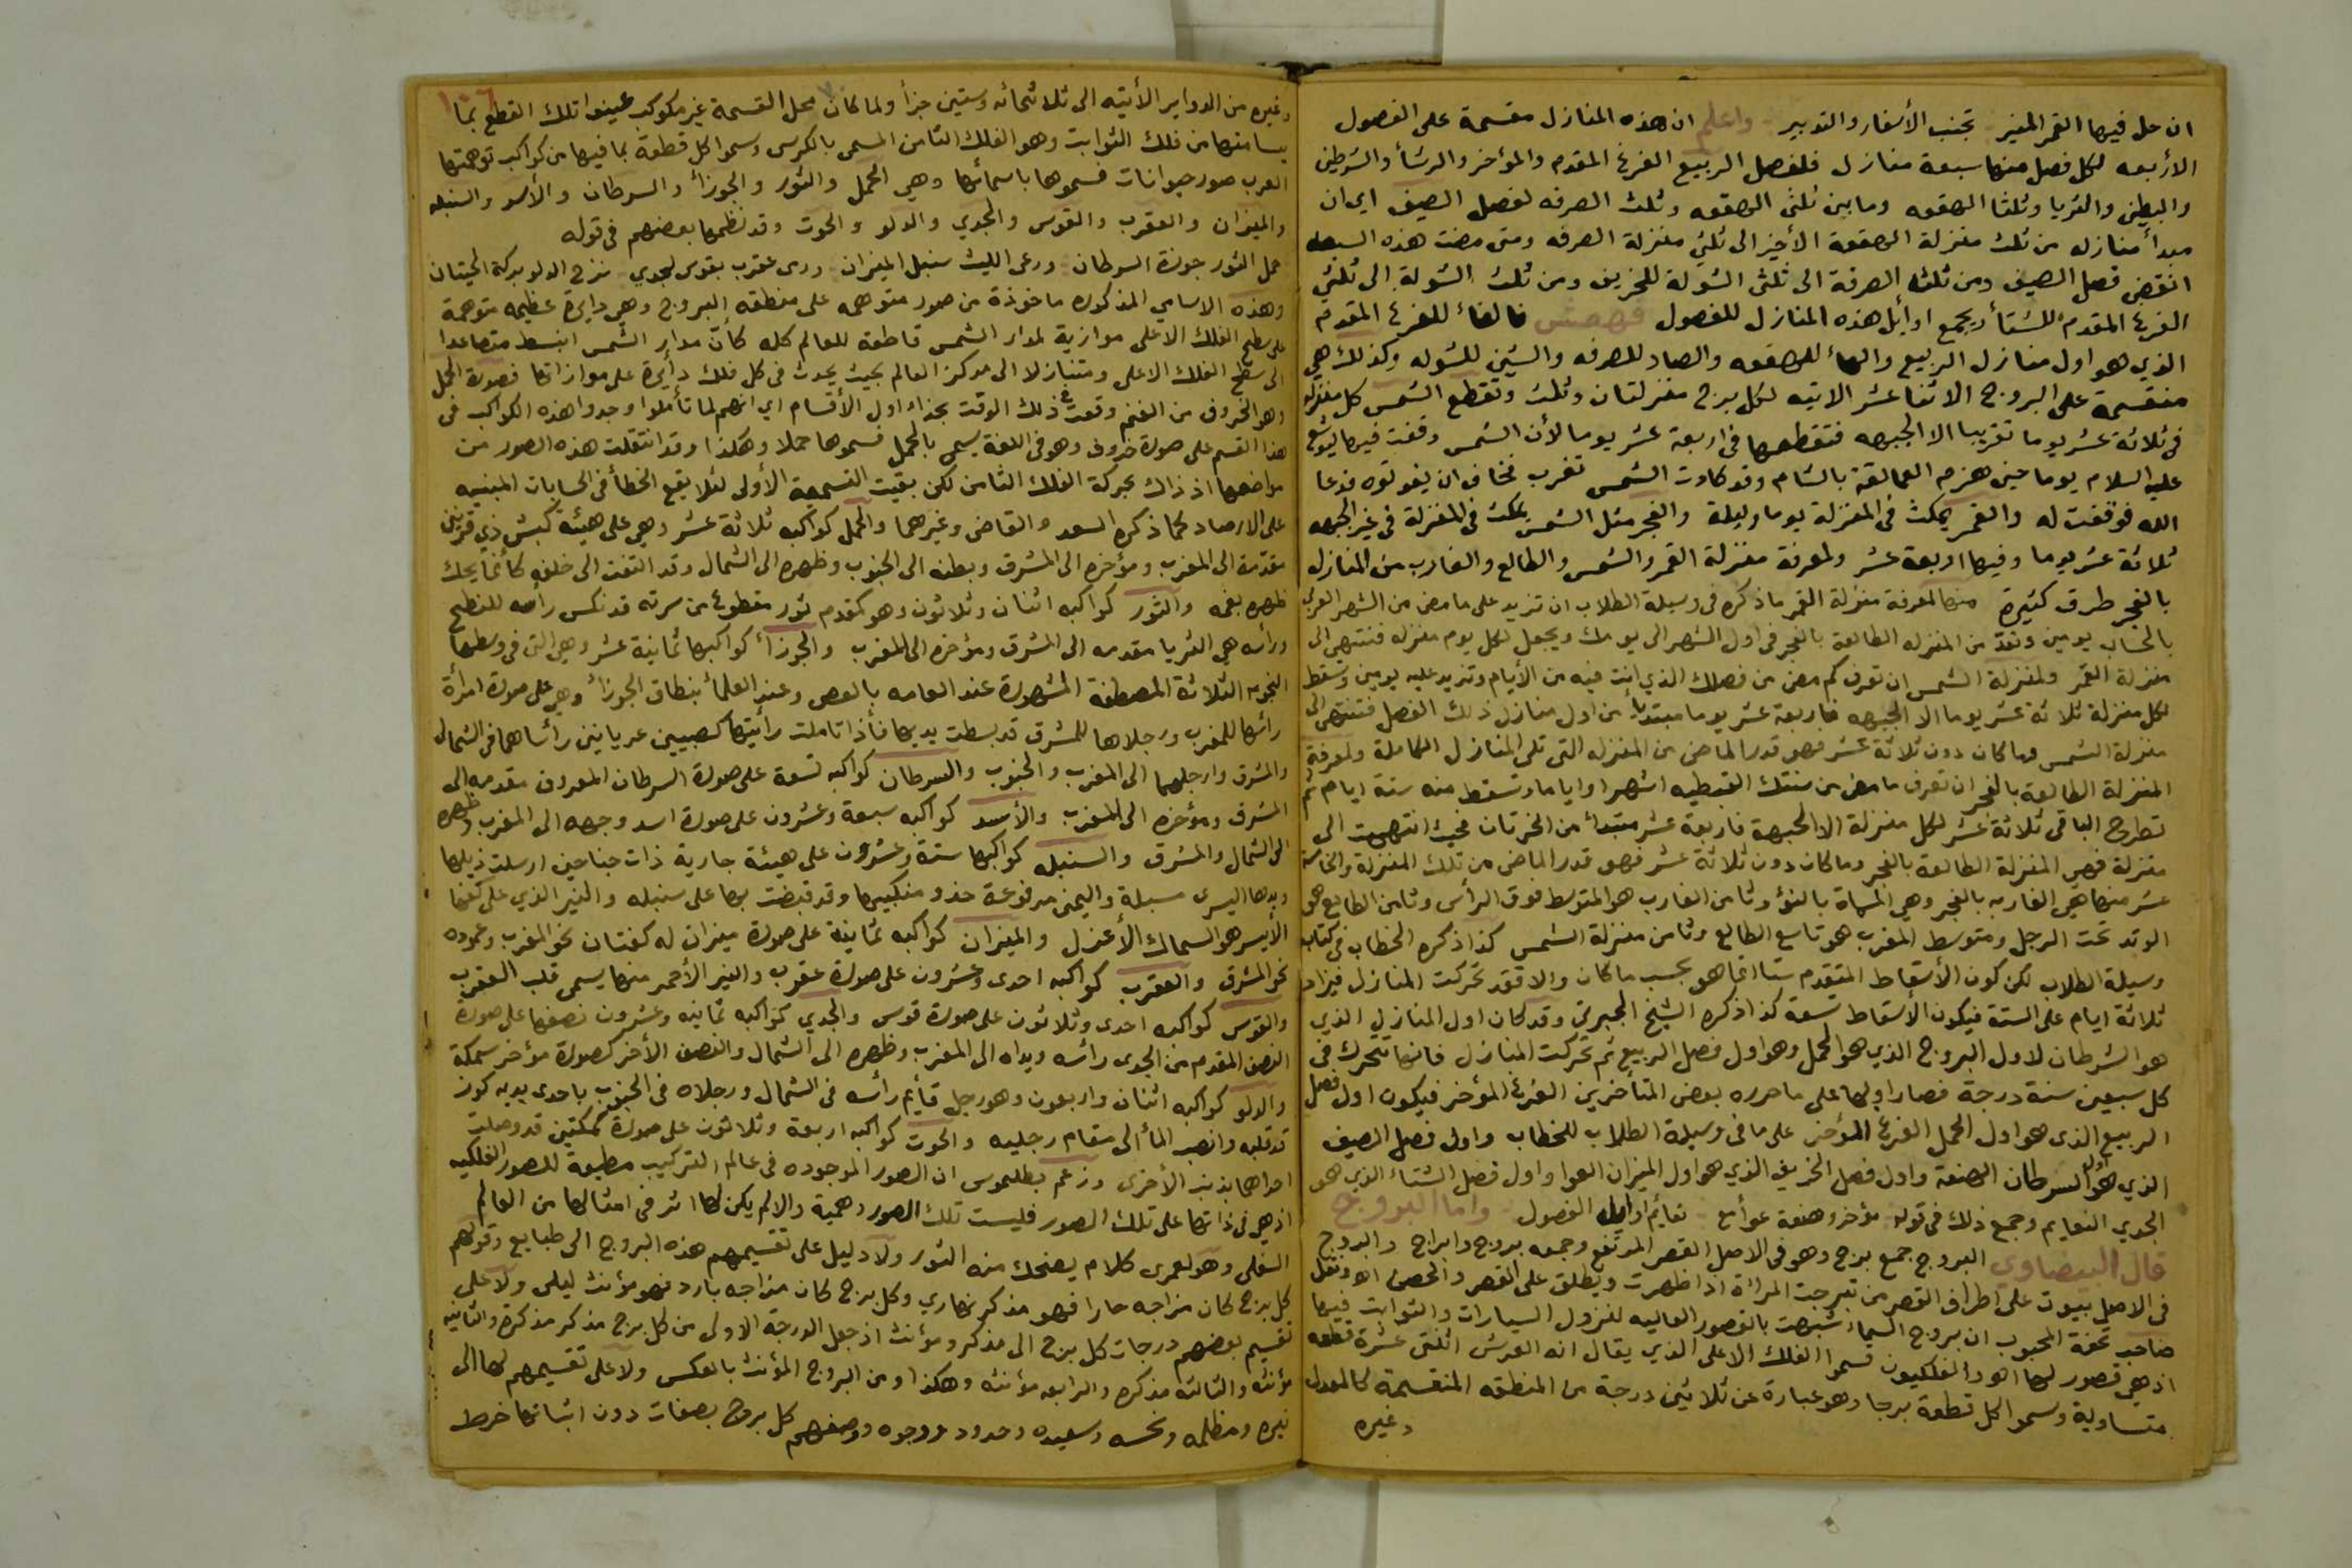 ان حل فيها القمر المنير تجنب الأسفار والتدبير واعلم ان هذه المنازل مقسمة على الفصول
الأربعه لكل فصل منها سبعة منازل فلفصل الربيع الفرغ المقدم والمؤخر والرشأ والشرطين
والبطين والثريا وثلثا الهقعه وما بين ثلثي الهقعه وثلث الصرفه لفصل الصيف اي ان
مبدأ منازله من ثلث منزلة الهقعة الأخير الى ثلثي منزلة الصرفه ومتى مضت هذه السبعه
انقضى فصل الصيف ومن ثلث الصرفة الى ثلثى الشولة للخريف ومن ثلث الشولة الى ثلثي
الفرغ المقدم للشتأ ويجمع اوايل هذه المنازل للفصول فهصش فالفأ للفرغ المقدم
الذي هو اول منازل الربيع والهأ للهقعه والصاد للصرفه والشين للشوله وكذلك هي
منقسمة على البروج الاثنا عشر الاتيه لكل برج منزلتان وثلث وتقطع الشمس كل منزله
في ثلاثة عشر يوما تقريبا الا الجبهه فتقطعها في اربعة عشر يوما لأن الشمس وقفت فيها ليوشع
عليه السلام يوما حين هزم العمالقة بالشام وقد كادت الشمس تغرب فخاف ان يفوتوه فدعا
الله فوقفت له والقمر يمكث في المنزلة يوما وليلة والفجر مثل الشمس يمكث في المنزلة في غير الجبهه
ثلاثة عشر يوما وفيها اربعة عشر ولمعرفة منزلة القمر والشمس والطالع والغارب من المنازل
بالفجر طرق كثيرة منها لمعرفة منزلة القمر ما ذكره في وسيلة الطلاب ان تزيد على ما مضى من الشهر العربي
بالحساب يومين وتعد من المنزله الطالعة بالفجر في اول الشهر الى يومك ويجعل لكل يوم منزله فتنتهي الى
منزلة القمر ولمنزلة الشمس ان تعرف كم مضى من فصلك الذي انت فيه من الأيام وتزيد عليه يومين وتسقط
لكل منزلة ثلاثة عشر يوما الا الجبهه فاربعة عشر يوما مبتديأ من اول منازل ذلك الفصل فتنتهي الى
منزلة الشمس وما كان دون ثلاثة عشر فهو قدر الماضى من المنزله التى تلى المنازل الكاملة ولمعرفة
المنزلة الطالعة بالفجر ان تعرف ما مضى من سنتك القبطيه اشهرا واياما وتسقط منه ستة ايام ثم
تطرح الباقى ثلاثة عشر لكل منزلة الا الجبهة فاربعة عشر مبتدأ من الخرتان فحيث انتهيت الى
منزلة فهي المنزلة الطالعة بالفجر وما كان دون ثلاثة عشر فهو قدر الماضى من تلك المنزلة والخامسة
عشر منها هي الغاربه بالفجر وهي المسماة بالنؤ وثامن الغارب هو المتوسط فوق الرأس وثامن الطالع هو
الوتد تحت الرجل ومتوسط المغرب هو تاسع الطالع وثامن منزلة الشمس كذا ذكره الخطاب في كتابه
وسيلة الطلاب لكن كون الأسقاط المتقدم ستا انما هو بحسب ما كان والا فقد تحركت المنازل فيزاد
ثلاثة ايام على الستة فيكون الأسقاط تسعة كذا ذكره الشيخ الجبرتي وقد كان اول المنازل الذي
هو الشرطان لاول البروج الذي هو الحمل وهو اول فصل الربيع ثم تحركت المنازل فانها تتحرك في
كل سبعين سنة درجة فصار اولها على ما حرره بعض المتأخرين الفرغ المؤخر فيكون اول فصل
الربيع الذي هو اول الحمل الفرغ المؤخر على ما فى وسيلة الطلاب للخطاب واول فصل الصيف
الذي هو اول السرطان الهنعة واول فصل الخريف الذي هو اول الميزان العوا واول فصل الشتاء الذي هو
الجدي النعايم وجمع ذلك فى قوله مؤخر وهنعة عوأ مع نعايم اوايل الفصول واما البروج
قال البيضاوي البروج جمع برج وهو فى الاصل القصر المرتفع وجمعه بروج وابراج والبروج
فى الاصل بيوت على اطراف القصر من تبرجت المرأة اذا ظهرت ويطلق على القصر والحصن اه ونقل
صاحب تحفة المحبوب ان بروج السماء شبهت بالقصور العاليه لنزول السيارات والثوابت فيها
اذ هي قصور لها اه والفلكيون قسموا الفلك الاعلى الذي يقال انه العرش اثنتى عشرة قطعه
متساوية وسموا كل قطعة برجا وهو عبارة عن ثلاثين درجة من المنطقه المنقسمة كالمعدل
وغيره
١٠٦
وغيره من الدواير الأتيه الى ثلاثمائه وستين جزأ ولما كان محل القسمة غير مكوكب عينوا تلك القطع بما
يسامتها من فلك الثوابت وهو الفلك الثامن المسمى بالكرسى وسموا كل قطعة بما فيها من كواكب توهمتها
العرب صور حيوانات فسموها باسمائها وهي الحمل والثور والجوزأ والسرطان والأسد والسنبله
والميزان والعقرب والقوس والجدي والدلو والحوت وقد نظمها بعضهم فى قوله
حمل الثور جوزة السرطان ورعى الليث سنبل الميزان ورمى عقرب بقوس لجدي نزح الدلو بركة الحيتان
وهذه الاسامي المذكوره ماخوذة من صور متوهمه على منطقه البروج وهي دايرة عظيمه متوهمة
على سطح الفلك الاعلى موازية لمدار الشمس قاطعة للعالم كله كأن مدار الشمس انبسط متصاعدا
الى سطح الفلك الاعلى ومتنازلا الى مركز العالم بحيث يحدث فى كل فلك دأيرة على موازاتها فصورة الحمل
وهو الخروف من الغنم وقعت فى ذلك الوقت بحذاء اول الأقسام اي انهم لما تأملوا وجدوا هذه الكواكب فى
هذا القسم على صورة خروف وهو فى اللغة يسمى بالحمل فسموها حملا وهكذا وقد انتقلت هذه الصور من
مواضعها اذ ذاك بحركة الفلك الثامن لكن بقيت التسمية الأولى لئلا يقع الخطأ فى الحسابات المبنيه
على الارصاد كما ذكره السعد والقاضى وغيرهما والحمل كواكبه ثلاثة عشر وهي على هيئة كبش ذي قرنين
مقدمة الى المغرب ومؤخره الى المشرق وبطنه الى الجنوب وظهره الى الشمال وقد التفت الى خلفه كأنما يحك
ظهره بفمه والثور كواكبه اثنان وثلاثون وهو كمقدم ثور مقطوع من سرته قد نكس رأسه للنطح
ورأسه هي الثريا مقدمه الى المشرق ومؤخره الى المغرب والجوزأ كواكبها ثمانية عشر وهي التى فى وسطها
النجوم الثلاثة المصطفة المشهورة عند العامه بالعصى وعند العلمأ بنطاق الجوزأ وهي على صورة امرأة
رأسها للمغرب ورجلاها للمشرق قد بسطت يديها فأذا تاملت رأيتها كصبيين عريانين رأساهما فى الشمال
والمشرق وارجلهما الى المغرب والجنوب والسرطان كواكبه تسعة على صورة السرطان المعروف مقدمه الى
المشرق ومؤخره الى المغرب والأسد كواكبه سبعة وعشرون على صورة اسد وجهه الى المغرب وظهره
الى الشمال والمشرق والسنبله كواكبها ستة وعشرون على هيئة جارية ذات جناحين ارسلت ذيلها
ويدها اليسرى مسبلة واليمنى مرفوعة حذو منكبيها وقد قبضت بها على سنبله والنير الذي على كفها
الأيسر هو السماك الأعزل والميزان كواكبه ثمانية على صورة ميزان له كفتان نحو المغرب وعموده
نحو المشرق والعقرب كواكبه احدى وعشرون على صورة عقرب والنير الأحمر منها يسمى قلب العقرب
والقوس كواكبه احدى وثلاثون على صورة قوس والجدي كواكبه ثمانيه وعشرون نصفها على صورة
النصف المقدم من الجدى رأسه ويداه الى المغرب وظهره الى الشمال والنصف الأخر كصورة مؤخر سمكة
والدلو كواكبه اثنان واربعون وهو رجل قأيم رأسه فى الشمال ورجلاه فى الجنوب باحدى يديه كوز
قد قلبه وانصب المأ الى مقام رجليه والحوت كواكبه اربعة وثلاثون على صورة سمكتين قد وصلت
احداهما بذنب الأخرى وزعم بطليموس ان الصور الموجوده فى عالم التركيب مطيعة للصور الفلكيه
اذ هي فى ذاتها على تلك الصور فليست تلك الصور وهمية والا لم يكن لها اثر فى امثالها من العالم
السفلى وهو لعمرى كلام يضحك منه الثور ولا دليل على تقسيمهم هذه البروج الى طبايع وقولهم
كل برج كان مزاجه حارا فهو مذكر نهاري وكل برج كان مزاجه بارد فهو مؤنث ليلى ولا على
تقسيم بعضهم درجات كل برج الى مذكر ومؤنث اذ جعل الدرجة الاولى من كل برج مذكر مذكرة والثانيه
مؤنثه والثالثه مذكره والرابعه مؤنثه وهكذا ومن البروج المؤنث بالعكس ولا على تقسيمهم لها الى
نيره ومظلمه ونحسه وسعيده وحدود ووجوه ووصفهم كل بروج بصفات دون اثباتها خرط